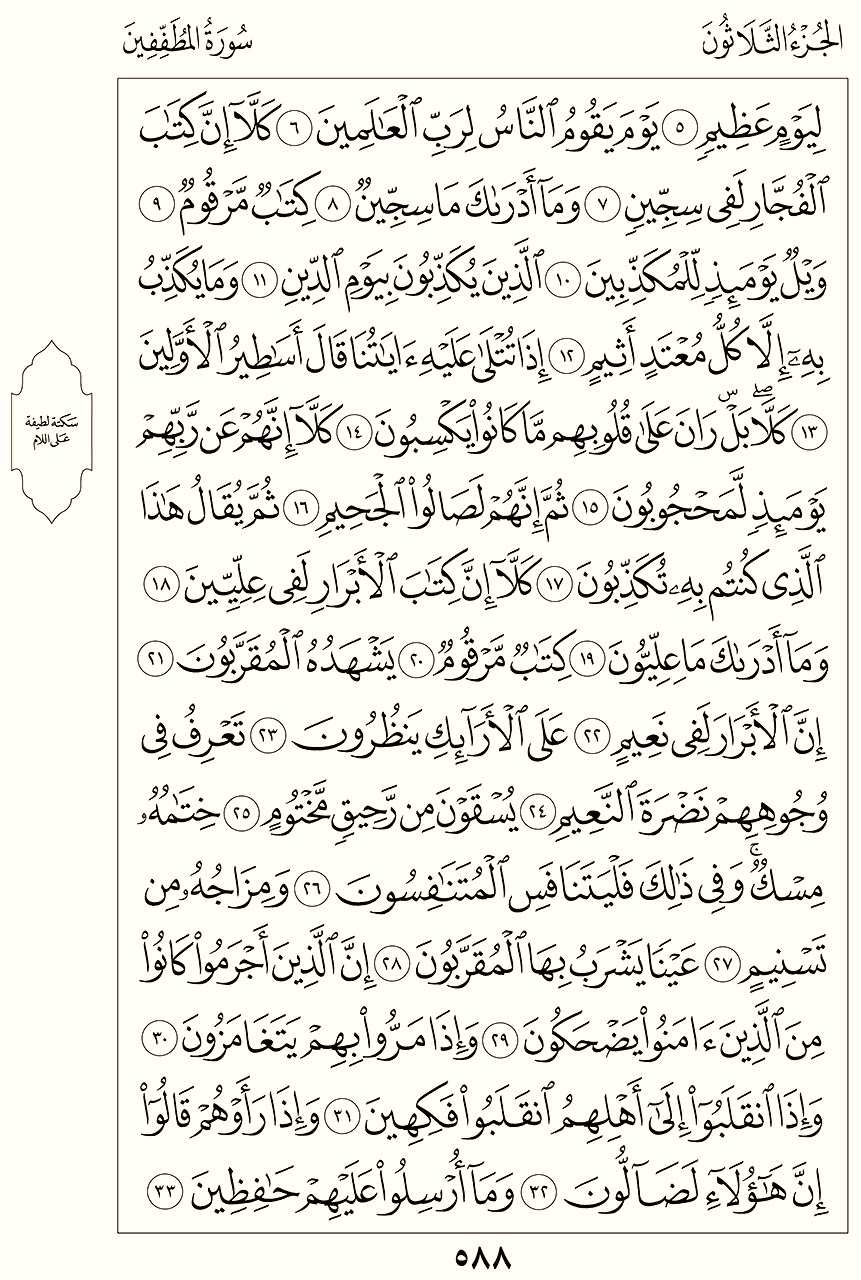 الجُزْءُ الثَّلَاثُونَ
سُورَةُ المُطَفِّفِينَ
لِيَوْمٍ عَظِيمٍ ٥ يَوْمَ يَقُومُ ٱلنَّاسُ لِرَبِّ ٱلْعَٰلَمِينَ ٦ كَلَّآ إِنَّ كِتَٰبَ
ٱلْفُجَّارِ لَفِى سِجِّينٍ ٧ وَمَآ أَدْرَىٰكَ مَا سِجِّينٌ ٨ كِتَٰبٌ مَّرْقُومٌ ٩
وَيْلٌ يَوْمَئِذٍ لِّلْمُكَذِّبِينَ ١٠ ٱلَّذِينَ يُكَذِّبُونَ بِيَوْمِ ٱلدِّينِ ١١ وَمَا يُكَذِّبُ
بِهِۦٓ إِلَّا كُلُّ مُعْتَدٍ أَثِيمٍ ١٢ إِذَا تُتْلَىٰ عَلَيْهِ ءَايَٰتُنَا قَالَ أَسَٰطِيرُ ٱلْأَوَّلِينَ
١٣ كَلَّاۖ بَلْۜ رَانَ عَلَىٰ قُلُوبِهِم مَّا كَانُوا۟ يَكْسِبُونَ ١٤ كَلَّآ إِنَّهُمْ عَن رَّبِّهِمْ
يَوْمَئِذٍ لَّمَحْجُوبُونَ ١٥ ثُمَّ إِنَّهُمْ لَصَالُوا۟ ٱلْجَحِيمِ ١٦ ثُمَّ يُقَالُ هَٰذَا
ٱلَّذِى كُنتُم بِهِۦ تُكَذِّبُونَ ١٧ كَلَّآ إِنَّ كِتَٰبَ ٱلْأَبْرَارِ لَفِى عِلِّيِّينَ ١٨
وَمَآ أَدْرَىٰكَ مَا عِلِّيُّونَ ١٩ كِتَٰبٌ مَّرْقُومٌ ٢٠ يَشْهَدُهُ ٱلْمُقَرَّبُونَ ٢١
إِنَّ ٱلْأَبْرَارَ لَفِى نَعِيمٍ ٢٢ عَلَى ٱلْأَرَآئِكِ يَنظُرُونَ ٢٣ تَعْرِفُ فِى
وُجُوهِهِمْ نَضْرَةَ ٱلنَّعِيمِ ٢٤ يُسْقَوْنَ مِن رَّحِيقٍ مَّخْتُومٍ ٢٥ خِتَٰمُهُۥ
مِسْكٌۚ وَفِى ذَٰلِكَ فَلْيَتَنَافَسِ ٱلْمُتَنَٰفِسُونَ ٢٦ وَمِزَاجُهُۥ مِن
تَسْنِيمٍ ٢٧ عَيْنًا يَشْرَبُ بِهَا ٱلْمُقَرَّبُونَ ٢٨ إِنَّ ٱلَّذِينَ أَجْرَمُوا۟ كَانُوا۟
مِنَ ٱلَّذِينَ ءَامَنُوا۟ يَضْحَكُونَ ٢٩ وَإِذَا مَرُّوا۟ بِهِمْ يَتَغَامَزُونَ ٣٠
وَإِذَا ٱنقَلَبُوٓا۟ إِلَىٰٓ أَهْلِهِمُ ٱنقَلَبُوا۟ فَكِهِينَ ٣١ وَإِذَا رَأَوْهُمْ قَالُوٓا۟
إِنَّ هَٰٓؤُلَآءِ لَضَآلُّونَ ٣٢ وَمَآ أُرْسِلُوا۟ عَلَيْهِمْ حَٰفِظِينَ ٣٣
سَكتة لطيفة
عَلى اللام
٥٨٨